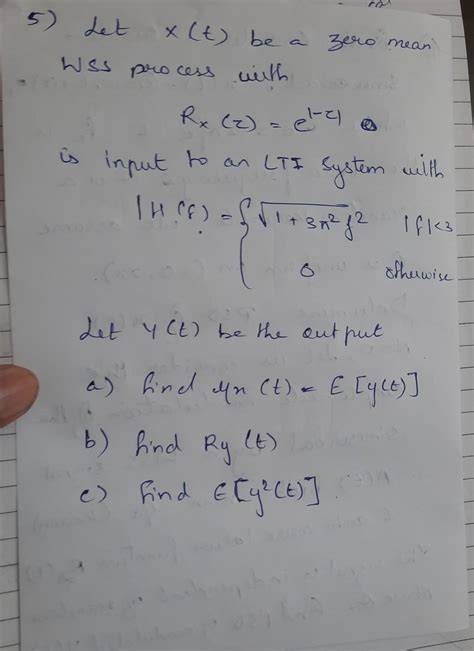 5) Let x(t) be a zero mean
WSS process with
Rx(z) = e^|-z|
is input to an LTI System with
|H(f) = { √1+3π² f² |f|<3
0 otherwise
Let Y(t) be the output
a) find μx (t) = E [y(t)]
b) find Ry (t)
c) find E[y²(t)]